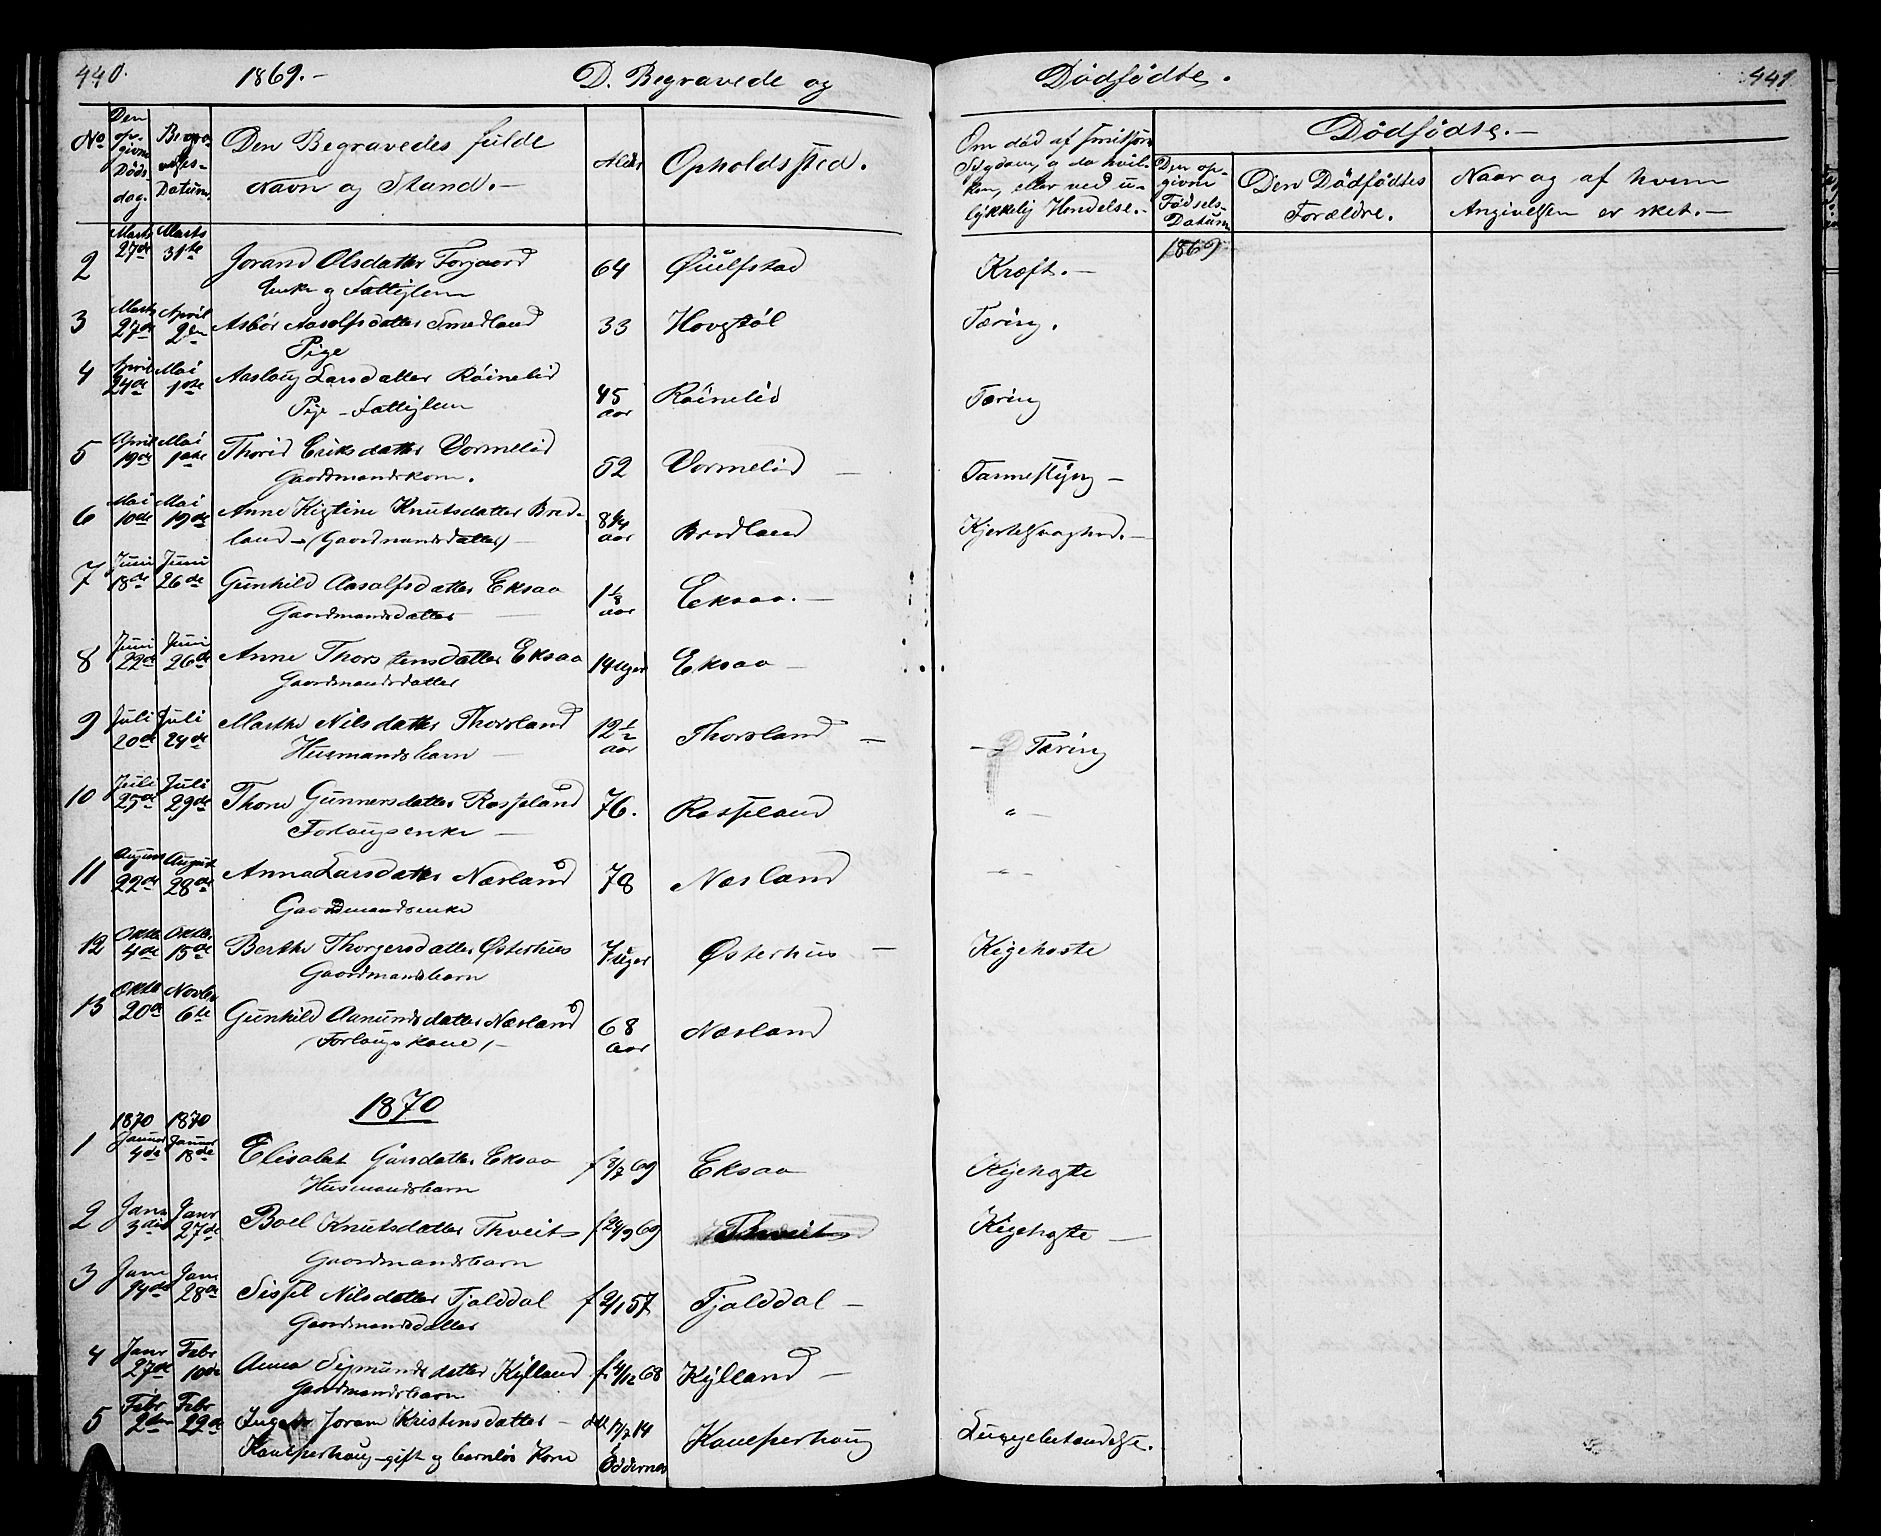 440. 1869.- D. Begravede og Dødfødte. 441
No Den opgivne Døds dag. Begravelses-Datum. Den Begravedes fulde Navn og Stand.- Alder Opholdssted. Om død af smitsom Sygdom, og da hvilken, eller ved ulykkelig Hendelse.- Dødfødte.-
Den opgivne Fødsels-Datum Den Dødfødtes Forældre. Naar og af hvem Angivelsen er sket.-
1869
2 Marts 27de Marts 31te Jorand Olsdatter 64 Øiulfstad Kræft.-
Enke og Fattiglem
3 Marts 27de April 2den Asbør Aasolfsdatter Smedland 33 Hovstøl Tæring.
Pige
4 April 24de Mai 1ste Aaslaug Larsdatter Røinelid 45 aar Røinelid Tæring
Pige - Fattiglem
5 April 19de Mai 1ste Thorid Eriksdatter Vormelid 52 Vormelid -
Gaardmandskone.
6 Mai 10de Mai 19de Anne Kistine Knutsdatter Bred- aar Bredland Kjertelsvaghed.-
land - (Gaardmandsdatter)
7 Juni 18de Juni 26de Gunhild Aasolfsdatter Eksaa 1 1/8 aar Eksaa.-
Gaardmandsdatter
8 Juni 22de Juni 26de Anne Thorstensdatter Eksaa 14 uger Eksaa -
Gaardmandsdatter
9 Juli 20de Juli 24de Marthe Nilsdatter Thorsland 12 1/2 aar Thorsland - Tæring
Husmandsbarn -
10 Juli 25de Juli 29de Thone Gunnersdatter Rosseland 76. Rosseland " -
Forlaugsenke -
11 August 22de August 28de Anna Larsdatter Næsland 78 Næsland " -
Gaardmandsenke
12 Oktbr 4de Oktbr. 15de Berthe Thorgersdatter Østerhus 7 uger Østerhus - Kighoste
Gaardmandsbarn
13 Oktbr 20de Novbr 6te Gunhild Aanundsdatter Næsland 68 Aar Næsland
(Forlaugskone)-
1870
1870 1870
1 Januar 4de Januar 18de Elisabet Eksaa f 8/7 69 Eksaa Kigehoste
Husmandsbarn
2 Janr 3die Janr 27de Boel Knutsdatter Thveit f 24/9 69 Thveit Kigehoste -
Gaardmandsbarn
3 Janr 14de Janr 28de Sissel Nilsdatter Tjalddal f 2/1 57 Tjalddal -
Gaardmandsdatter
4 Janr 27de Febr 10de Anna Sigmundsdatter Kylland f. 4/12 68 Kylland -
Gaardmandsbarn
5 Febr 2den Febr 22de Joram Kristensdatter - 17/7 14 Kauesperhaug Lungebetændelse.
Kauesperhaug - gift og barnløs Kone Oddernes